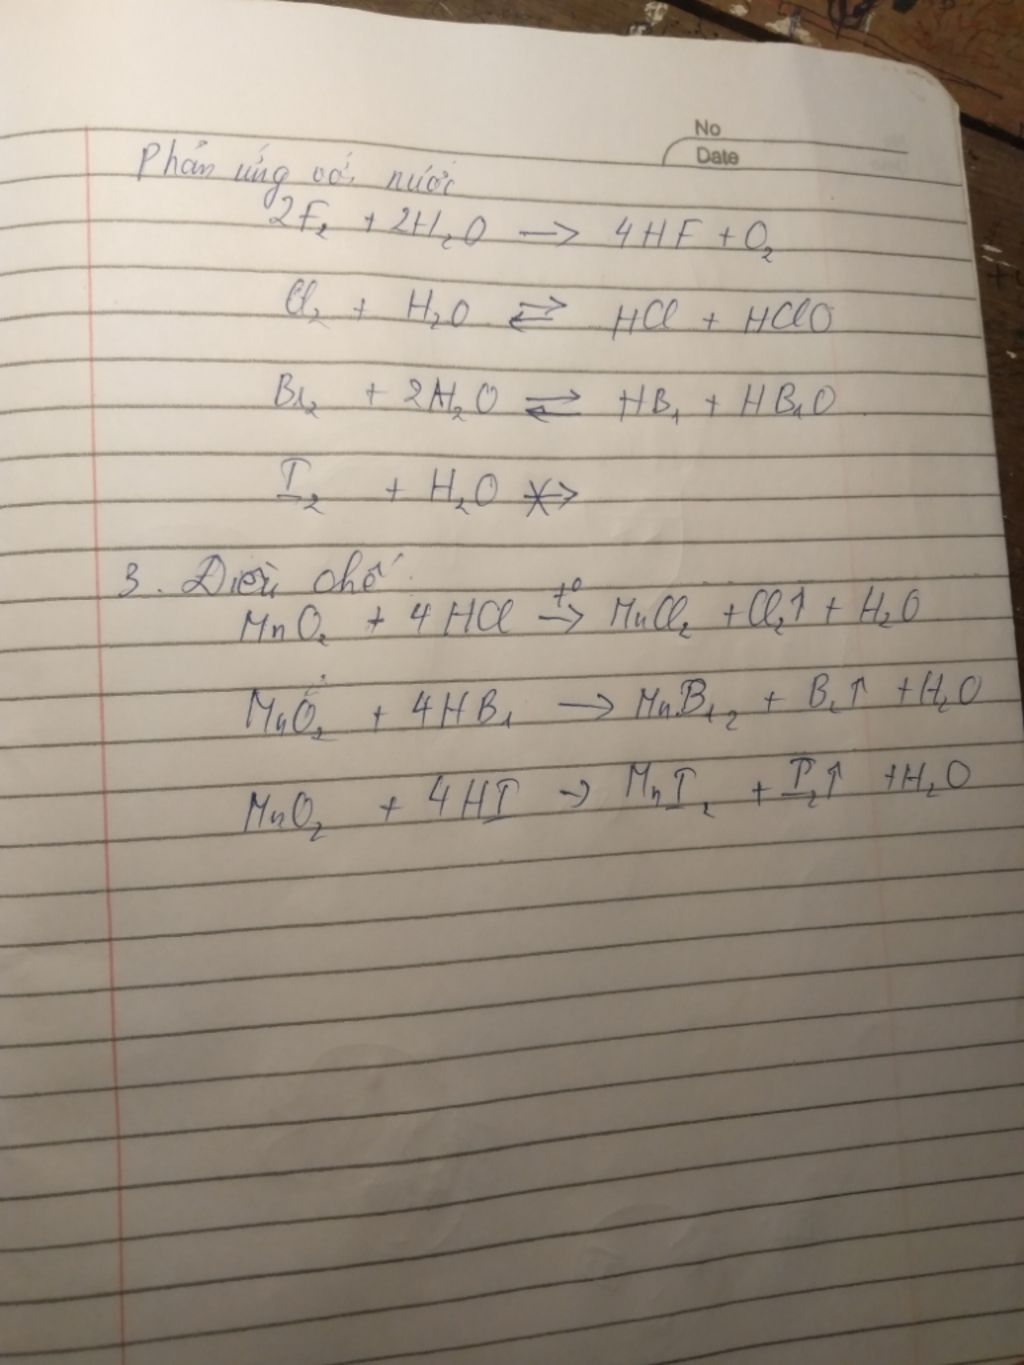 No
Date
Phản ứng với nước
2F₂ + 2H₂O → 4HF + O₂
Cl₂ + H₂O ⇌ HCl + HClO
Br₂ + 2H₂O ⇌ HBr + HBrO
I₂ + H₂O ↛
3. Điều chế
MnO₂ + 4HCl →(t°) MnCl₂ + Cl₂↑ + H₂O
MnO₂ + 4HBr → MnBr₂ + Br↑ + H₂O
MnO₂ + 4HI → MnI₂ + I₂↑ + H₂O